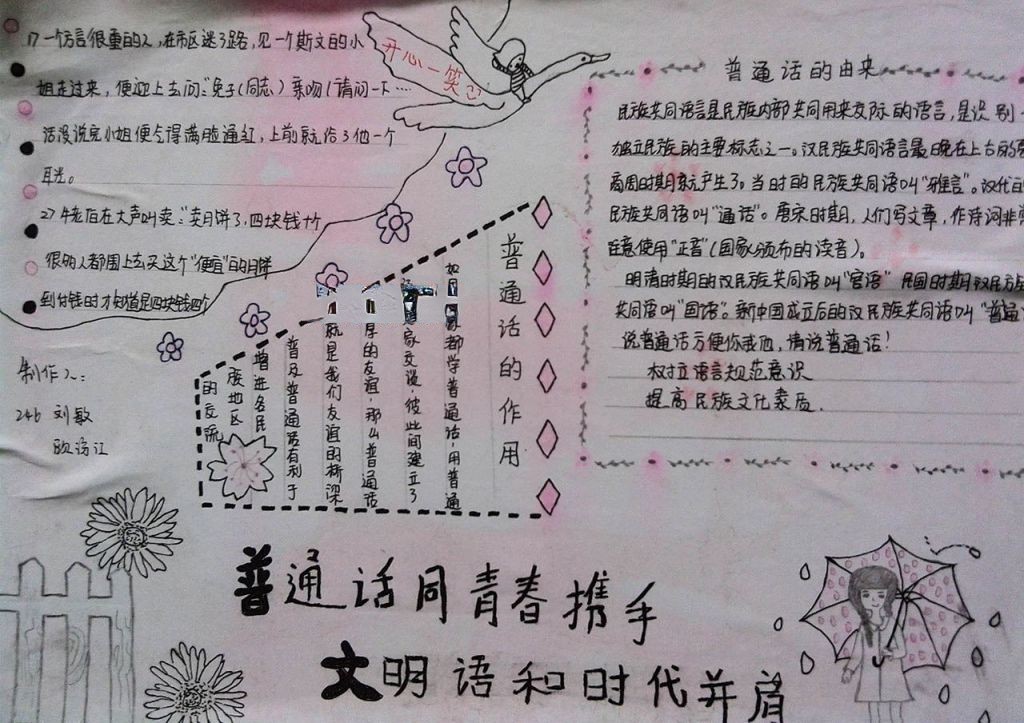 1、一个方言很重的人，在市区迷了路，见一个斯文的小
姐走过来，便迎上去问：“兔子（同志）亲吻（请问一下…
话没说完小姐便气得满脸通红，上前就给了他一个
耳光。
2、一老伯在大声叫卖：“卖月饼了，四块钱1个
很多人都围上去买这个“便宜”的月饼
到付钱时才知道是四块钱四个
开心一笑
制作人：
246 刘敏
普通话的作用
都学普通话，用普通
家交谈，彼此间建立了
厚的友谊，那么普通话
就是我们友谊的桥梁
普及普通话有利于
增进各民
族地区
的交流
普通话的由来
民族共同语言是民族内部共同用来交际的语言，是识别一
独立民族的主要标志之一。汉民族共同语言最晚在上古的
商周时期就产生了。当时的民族共同语叫“雅言”。汉代
民族共同语叫“通话”。唐宋时期，人们写文章，作诗词非常
注意使用“正音”（国家颁布的读音）。
明清时期的汉民族共同语叫“官语” 民国时期汉民族
共同语叫“国语”。新中国成立后的汉民族共同语叫“普通
说普通话方便你我他，请说普通话！
树立语言规范意识
提高民族文化素质.
普通话同青春携手
文明语和时代并肩